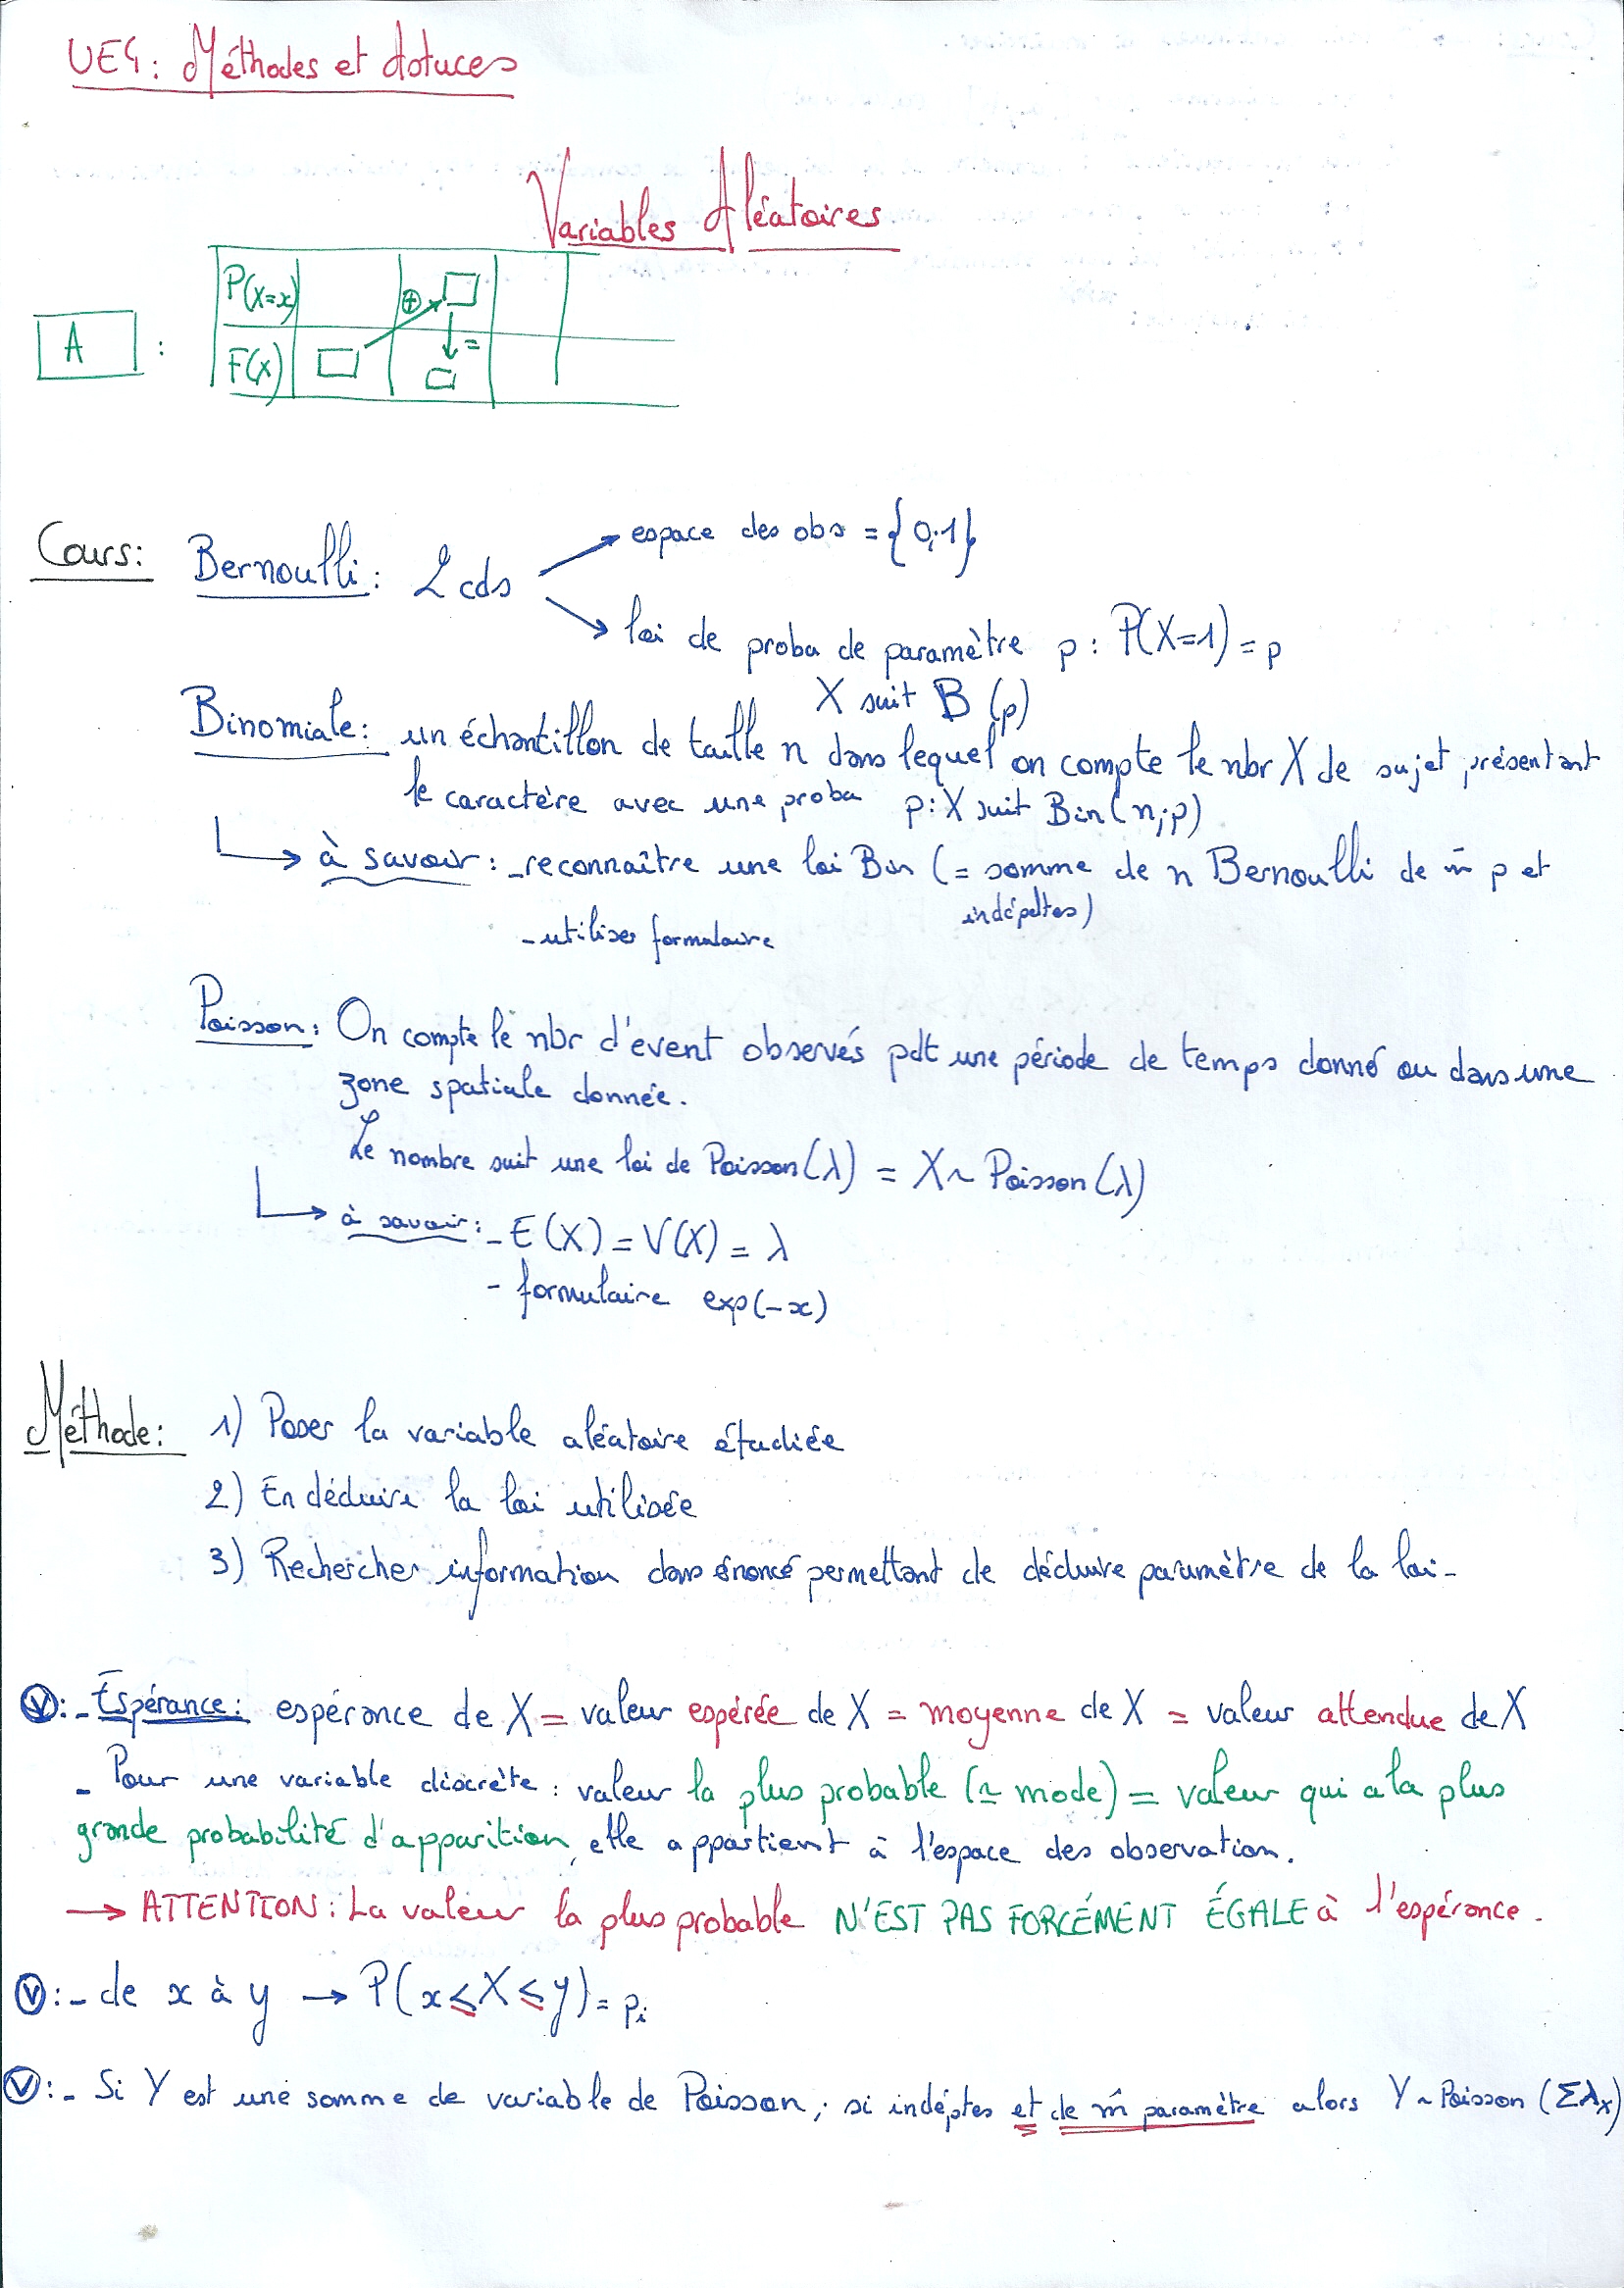 UE4 : Méthodes et Astuces
Variables Aléatoires
A :
P(X=x) ⊕
F(x) =
Cours: Bernoulli : 2 cds
espace des obs = {0;1}
loi de proba de paramètre p : P(X=1) = p
X suit B (p)
Binomiale : un échantillon de taille n dans lequel on compte le nbr X de sujet présentant
le caractère avec une proba p : X suit Bin (n;p)
à savoir : - reconnaître une loi Bin (= somme de n Bernoulli de m̂ p et
indépdtes)
- utiliser formulaire
Poisson : On compte le nbr d'event observés pdt une période de temps donné ou dans une
zone spatiale donnée.
Le nombre suit une loi de Poisson (λ) = X ~ Poisson (λ)
à savoir : - E(X) = V(X) = λ
- formulaire exp(-x)
Méthode : 1) Poser la variable aléatoire étudiée
2) En déduire la loi utilisée
3) Rechercher information dans énoncé permettant de déduire paramètre de la loi -
V : - Espérance : espérance de X = valeur espérée de X = moyenne de X = valeur attendue de X
- Pour une variable discrète : valeur la plus probable (≃ mode) = valeur qui a la plus
grande probabilité d'apparition, elle appartient à l'espace des observation.
→ ATTENTION : La valeur la plus probable N'EST PAS FORCÉMENT ÉGALE à l'espérance.
V : - de x à y → P(x ≤ X ≤ y) = pi
V : - Si Y est une somme de variable de Poisson, si indéptes et de m̂ paramètre alors Y ~ Poisson (Σλx)